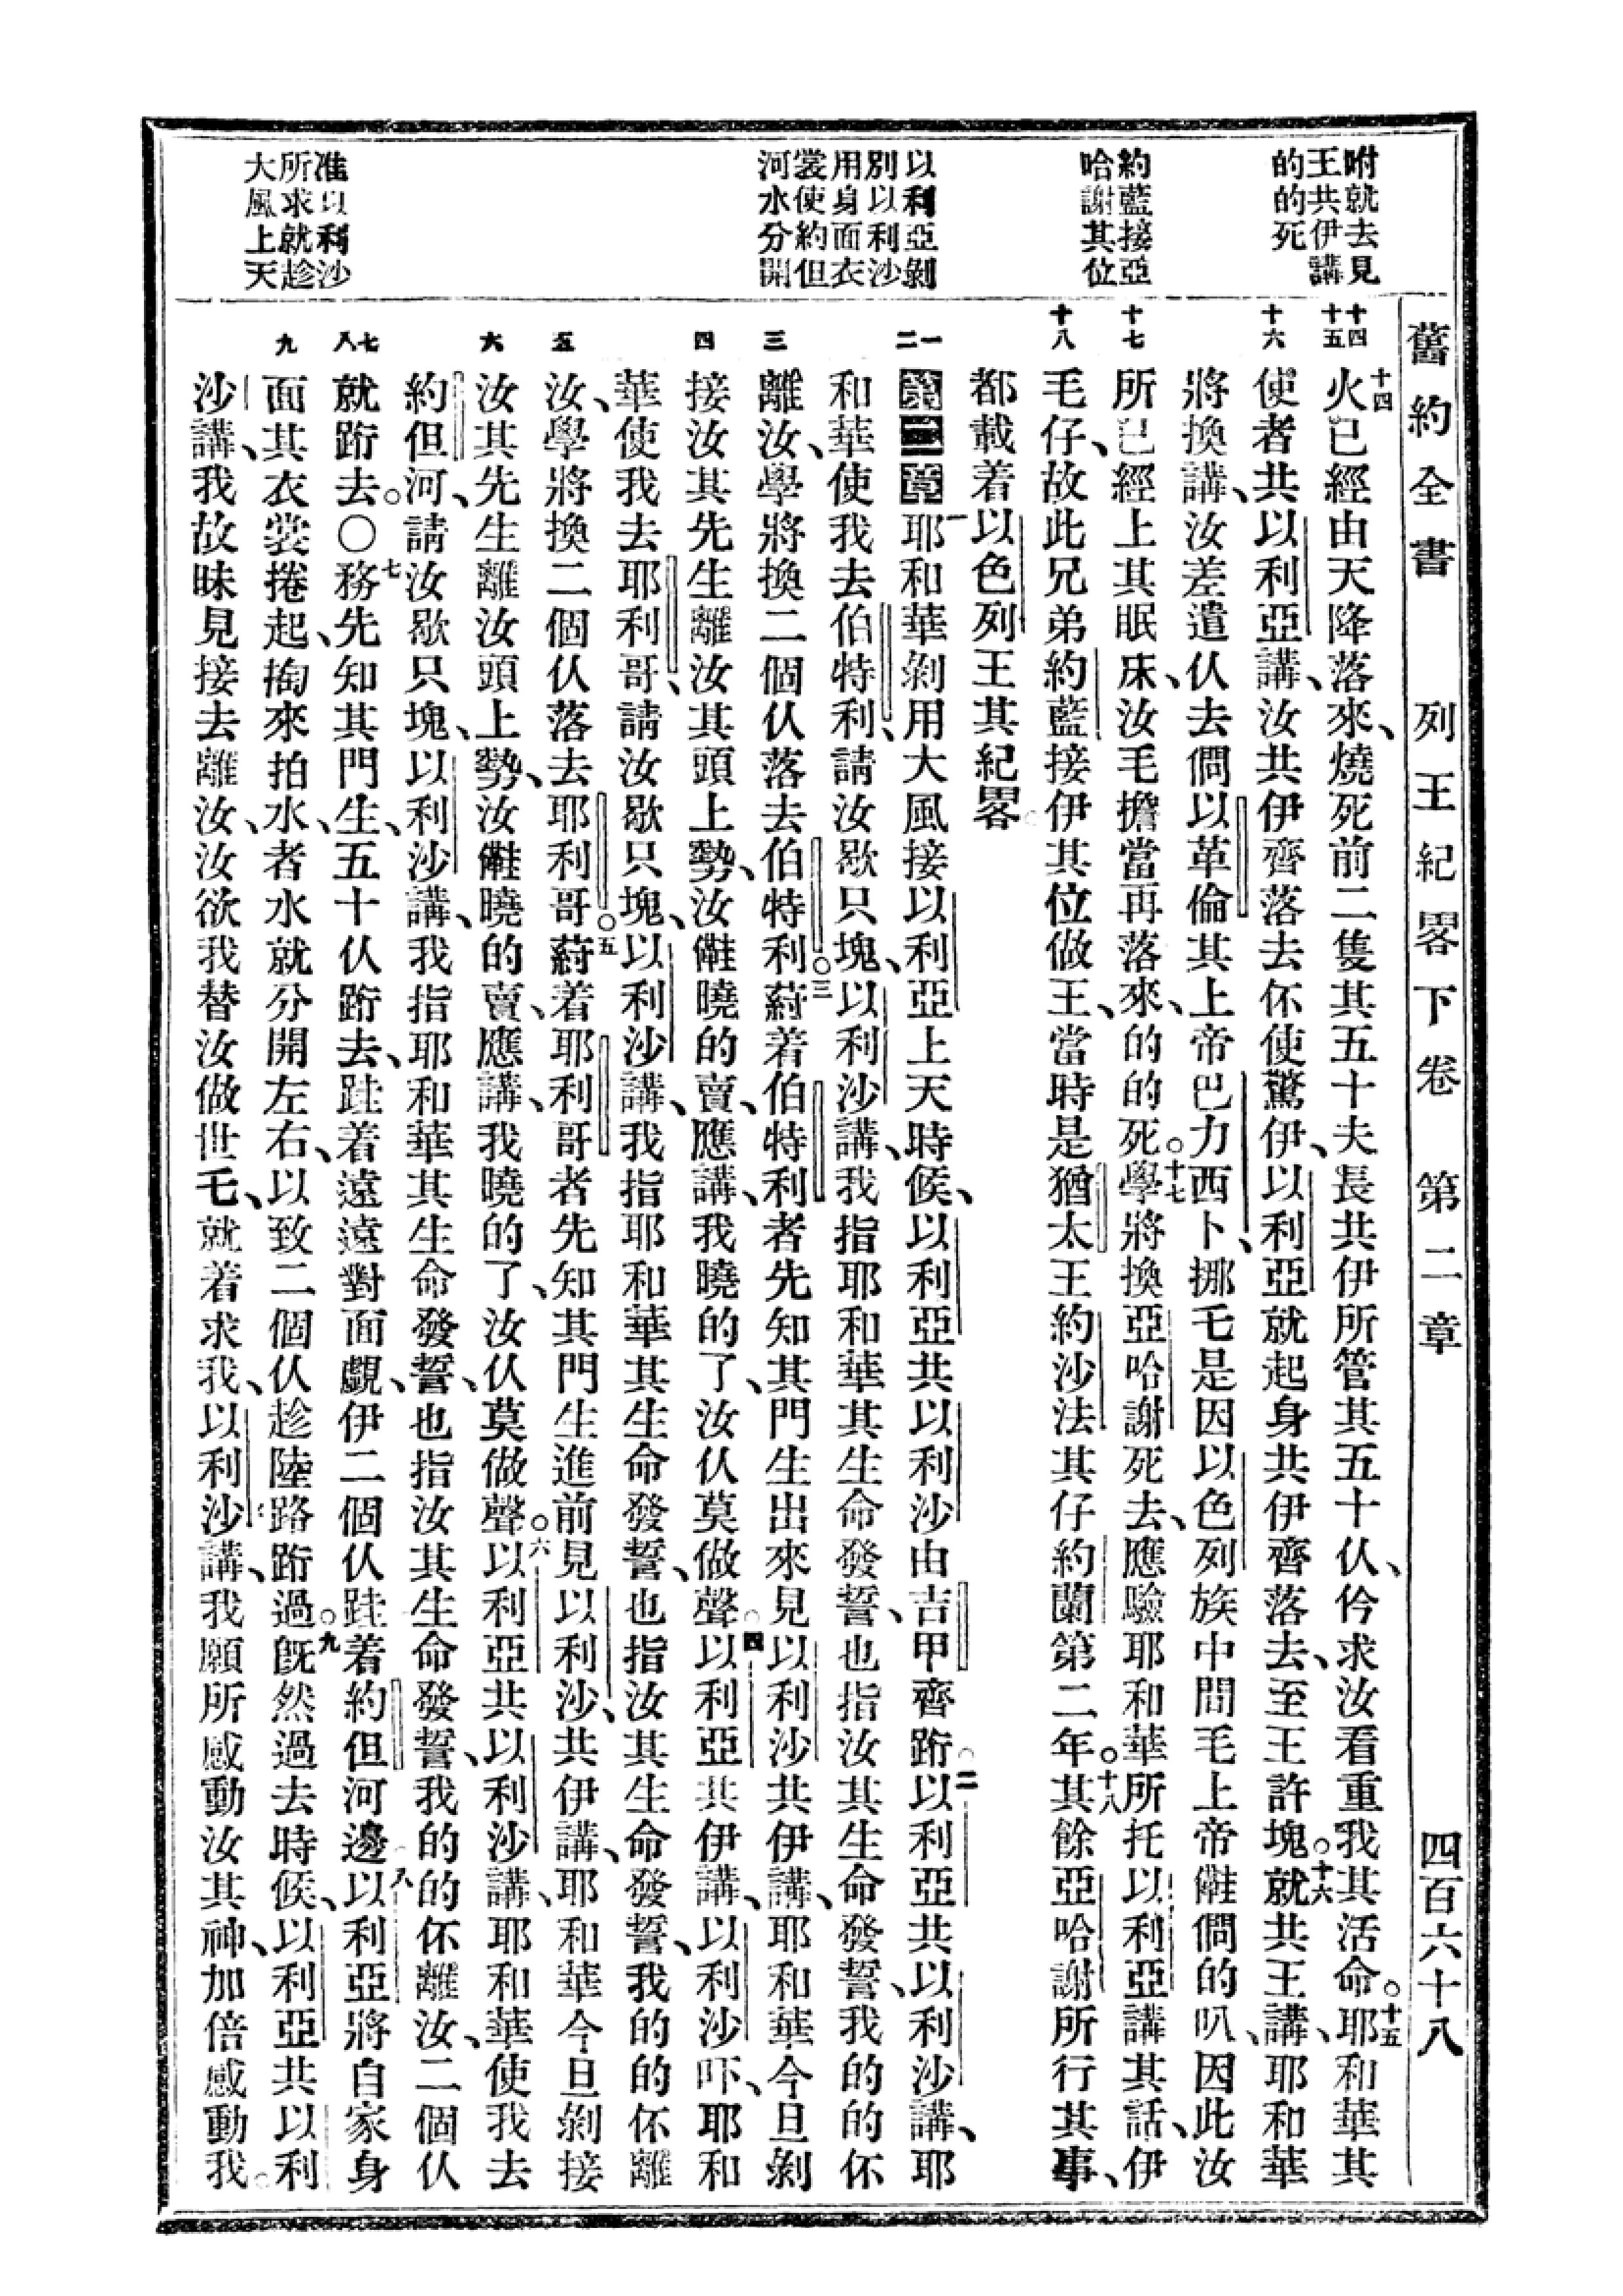 舊約全書　列王紀畧下卷　第二章　四百六十八
咐就去見
王共伊講
的的死
約藍接亞
哈謝其位
以利亞剝
別以利沙
用身面衣
裳使約但
河水分開
准以利沙
所求就趁
大風上天
十四
十五
十六
十七
十八
一
二
三
四
五
六
七
八
九
十四火已經由天降落來、燒死前二隻其五十夫長共伊所管其五十仈、伶求汝看重我其活命。十五耶和華其
使者共以利亞講、汝共伊齊落去伓使驚伊、以利亞就起身共伊齊落去、至王許塊。十六就共王講、耶和華
將換講、汝差遣仈去僩以革倫其上帝巴力西卜、挪乇是因以色列族中間毛上帝𣍐僩的叭、因此汝
所已經上其眠床、汝毛擔當再落來、的的死。十七學將換亞哈謝死去、應驗耶和華所托以利亞講其話、伊
毛仔、故此兄弟約藍接伊其位做王、當時是猶太王約沙法其仔約蘭第二年。十八其餘亞哈謝所行其事、
都載着以色列王其紀畧。
第二章一耶和華剝用大風接以利亞上天時候、以利亞共以利沙由吉甲齊跒。二以利亞共以利沙講、耶
和華使我去伯特利、請汝歇只塊、以利沙講、我指耶和華其生命發誓、也指汝其生命發誓、我的的伓
離汝、學將換二個仈落去伯特利。三蒞着伯特利者先知其門生出來見以利沙共伊講、耶和華今旦剝
接汝其先生離汝其頭上勢、汝𣍐曉的賣、應講、我曉的了、汝仈莫做聲。四以利亞共伊講、以利沙吓、耶和
華使我去耶利哥、請汝歇只塊、以利沙講、我指耶和華其生命發誓、也指汝其生命發誓、我的的伓離
汝、學將換二個仈落去耶利哥。五蒞着耶利哥者先知其門生進前見以利沙、共伊講、耶和華今旦剝接
汝其先生離汝頭上勢、汝𣍐曉的賣、應講、我曉的了、汝仈莫做聲。六以利亞共以利沙講、耶和華使我去
約但河、請汝歇只塊、以利沙講、我指耶和華其生命發誓、也指汝其生命發誓、我的的伓離汝、二個仈
就跒去。〇七務先知其門生、五十仈跒去、跬着遠遠對面覷、伊二個仈跬着約但河邊。八以利亞將自家身
面其衣裳捲起、掏來拍水、者水就分開左右、以致二個仈趁陸路跒過。九旣然過去時候、以利亞共以利
沙講、我故昧見接去離汝、汝欲我替汝做世乇、就着求我、以利沙講、我願所感動汝其神、加倍感動我。